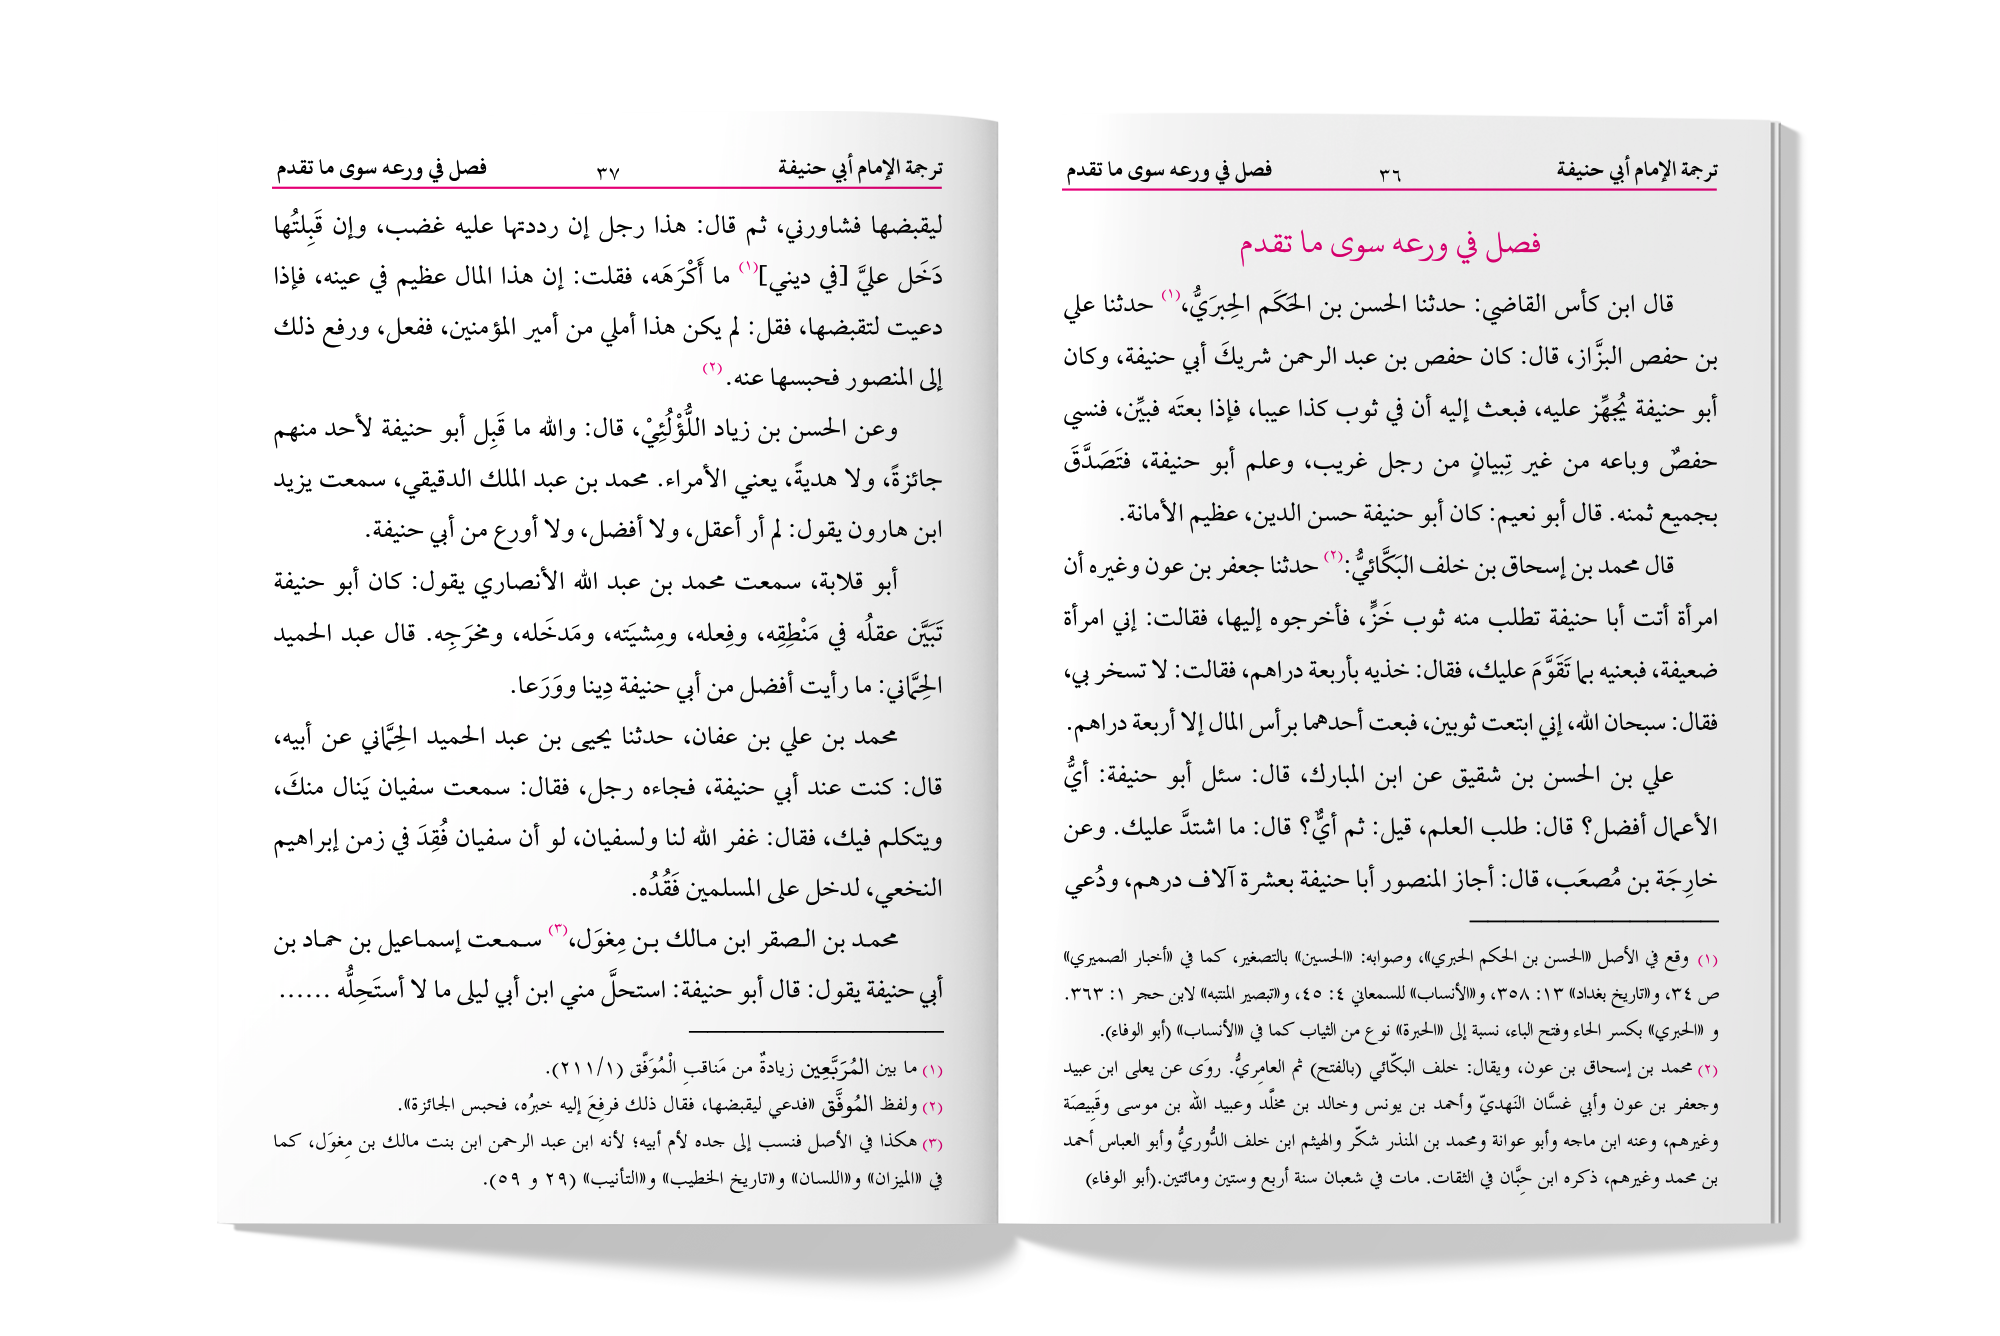 ترجمة الإمام أبي حنيفة ٣٦ فصل في ورعه سوى ما تقدم
فصل في ورعه سوى ما تقدم
قال ابن كأس القاضي: حدثنا الحسن بن الحَكَم الحِبَريُّ،(١) حدثنا علي
بن حفص البزَّاز، قال: كان حفص بن عبد الرحمن شريكَ أبي حنيفة، وكان
أبو حنيفة يُجهِّز عليه، فبعث إليه أن في ثوب كذا عيبا، فإذا بعتَه فبيِّن، فنسي
حفصٌ وباعه من غير تِبيانٍ من رجل غريب، وعلم أبو حنيفة، فتَصَدَّقَ
بجميع ثمنه. قال أبو نعيم: كان أبو حنيفة حسن الدين، عظيم الأمانة.
قال محمد بن إسحاق بن خلف البَكَّائيُّ:(٢) حدثنا جعفر بن عون وغيره أن
امرأة أتت أبا حنيفة تطلب منه ثوب خَزٍّ، فأخرجوه إليها، فقالت: إني امرأة
ضعيفة، فبعنيه بما تَقَوَّمَ عليك، فقال: خذيه بأربعة دراهم، فقالت: لا تسخر بي،
فقال: سبحان الله، إني ابتعت ثوبين، فبعت أحدهما برأس المال إلا أربعة دراهم.
علي بن الحسن بن شقيق عن ابن المبارك، قال: سئل أبو حنيفة: أيُّ
الأعمال أفضل؟ قال: طلب العلم، قيل: ثم أيٌّ؟ قال: ما اشتدَّ عليك. وعن
خارِجَة بن مُصعَب، قال: أجاز المنصور أبا حنيفة بعشرة آلاف درهم، ودُعي
(١) وقع في الأصل «الحسن بن الحكم الحبري»، وصوابه: «الحسين» بالتصغير، كما في «أخبار الصميري»
ص ٣٤، و«تاريخ بغداد» ١٣: ٣٥٨، و«الأنساب» للسمعاني ٤: ٤٥، و«تبصير المنتبه» لابن حجر ١: ٣٦٣.
و «الحبري» بكسر الحاء وفتح الباء، نسبة إلى «الحبرة» نوع من الثياب كما في «الأنساب» (أبو الوفاء).
(٢) محمد بن إسحاق بن عون، ويقال: خلف البكّائي (بالفتح) ثم العامِريُّ. روَى عن يعلى ابن عبيد
وجعفر بن عون وأبي غسَّان النَهديّ وأحمد بن يونس وخالد بن مخلَّد وعبيد الله بن موسى وقَبِيصَة
وغيرهم، وعنه ابن ماجه وأبو عوانة ومحمد بن المنذر شكّر والهيثم ابن خلف الدُّوريُّ وأبو العباس أحمد
بن محمد وغيرهم، ذكره ابن حِبَّان في الثقات. مات في شعبان سنة أربع وستين ومائتين.(أبو الوفاء)
ترجمة الإمام أبي حنيفة ٣٧ فصل في ورعه سوى ما تقدم
ليقبضها فشاورني، ثم قال: هذا رجل إن رددتها عليه غضب، وإن قَبِلتُها
دَخَل عليَّ [في ديني](١) ما أَكْرَهَه، فقلت: إن هذا المال عظيم في عينه، فإذا
دعيت لتقبضها، فقل: لم يكن هذا أملي من أمير المؤمنين، ففعل، ورفع ذلك
إلى المنصور فحبسها عنه.(٢)
وعن الحسن بن زياد اللُّؤْلُئِيْ، قال: والله ما قَبِل أبو حنيفة لأحد منهم
جائزةً، ولا هديةً، يعني الأمراء. محمد بن عبد الملك الدقيقي، سمعت يزيد
ابن هارون يقول: لم أر أعقل، ولا أفضل، ولا أورع من أبي حنيفة.
أبو قلابة، سمعت محمد بن عبد الله الأنصاري يقول: كان أبو حنيفة
تَبَيَّن عقلُه في مَنْطِقِه، وفِعله، ومِشيَته، ومَدخَله، ومخرَجِه. قال عبد الحميد
الحِمَّاني: ما رأيت أفضل من أبي حنيفة دِينا ووَرَعا.
محمد بن علي بن عفان، حدثنا يحيى بن عبد الحميد الحِمَّاني عن أبيه،
قال: كنت عند أبي حنيفة، فجاءه رجل، فقال: سمعت سفيان يَنال منكَ،
ويتكلم فيك، فقال: غفر الله لنا ولسفيان، لو أن سفيان فُقِدَ في زمن إبراهيم
النخعي، لدخل على المسلمين فَقُدُه.
محمـد بن الـصقر ابن مـالك بـن مِغوَل،(٣) سـمـعت إسمـاعيل بن حمـاد بن
أبي حنيفة يقول: قال أبو حنيفة: استحلَّ مني ابن أبي ليلى ما لا أستَحِلُّه ......
(١) ما بين المُرَبَّعِين زيادةٌ من مَناقبِ الْمُوَفَّق (٢١١/١).
(٢) ولفظ المُوفَّق «فدعي ليقبضها، فقال ذلك فرفِعَ إليه خبرُه، فحبس الجائزة».
(٣) هكذا في الأصل فنسب إلى جده لأم أبيه؛ لأنه ابن عبد الرحمن ابن بنت مالك بن مِغوَل، كما
في «الميزان» و«اللسان» و«تاريخ الخطيب» و«التأنيب» (٢٩ و ٥٩).